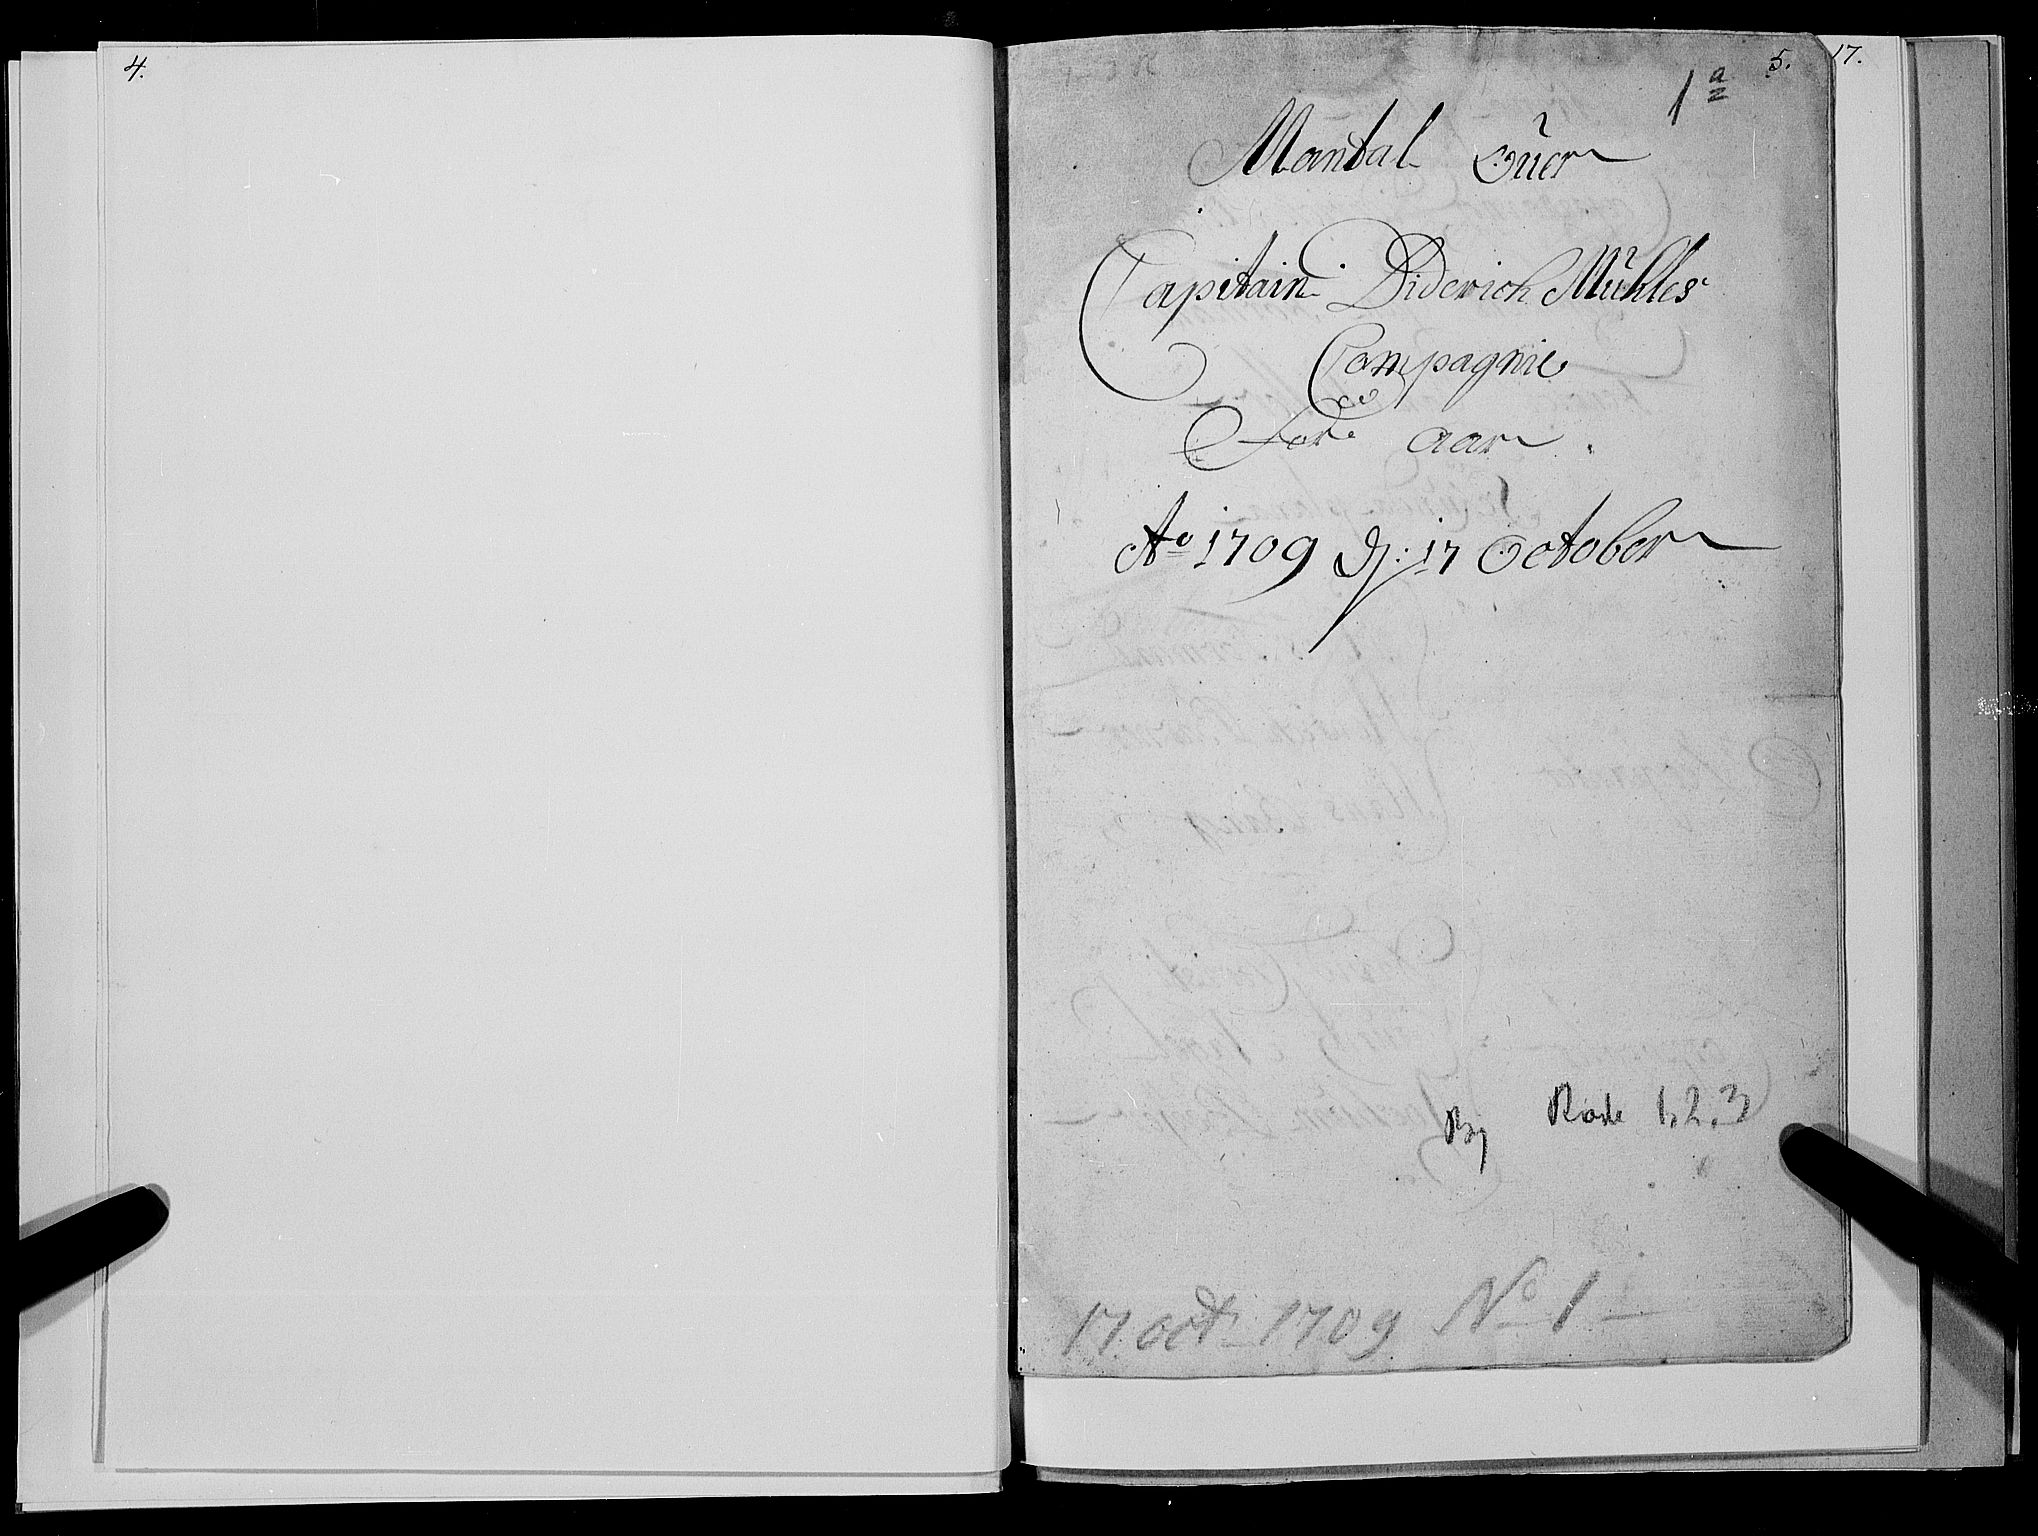 4.
5. 17.
1ª
Mantal Öfuer
Capitain Diderich Mühles
Compagnie
For aar
Ao 1709 d: 17 October
By Rode 1, 2, 3
17 oct 1709 No 1